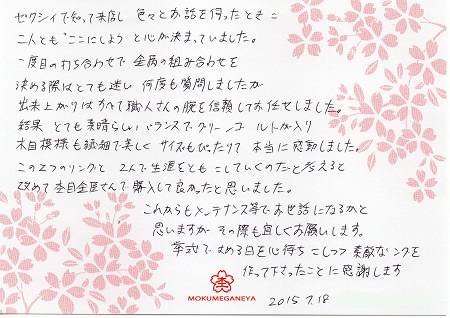 ゼクシィで知って来店し 色々とお話を伺ったときに
二人とも"ここにしよう"と心が決まっていました。
二度目の打ち合わせで 金属の組み合わせを
決める際はとても迷い 何度も質問しましたが
出来上がりはすべて職人さんの腕を信頼してお任せしました。
結果 とても素晴らしいバランスでグリーンゴールドが入り
木目模様も繊細で美しく サイズもぴったりで 本当に感動しました。
この2つのリングと 2人で生涯をともにしていくのだと考えると
改めて 杢目金屋さんで購入して良かったと思いました。
これからもメンテナンス等でお世話になるかと
思いますが その際も宜しくお願いします。
挙式ではめる日を心待ちにしつつ 素敵なリングを
作って下さったことに感謝します
2015 7.18
MOKUMEGANEYA